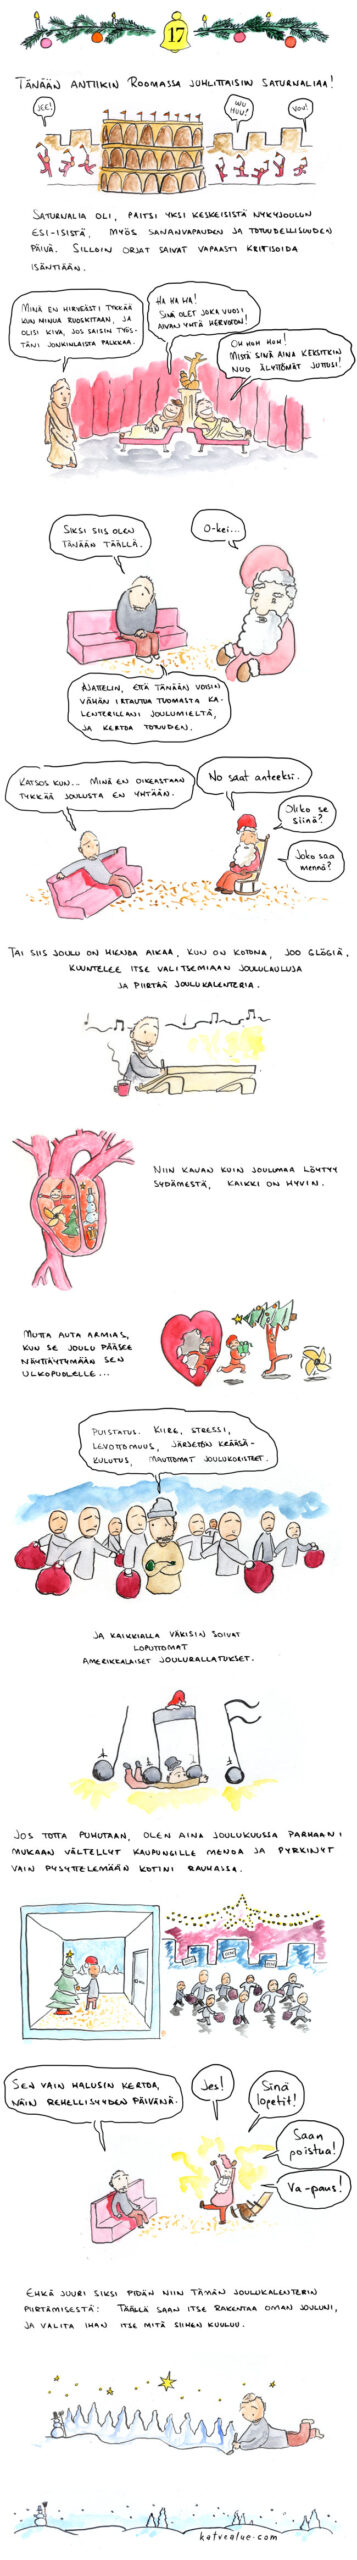 17
TÄNÄÄN ANTIIKIN ROOMASSA JUHLITTAISIIN SATURNALIAA!
JEE!
WU
HUU!
VOU!
SATURNALIA OLI, PAITSI YKSI KESKEISISTÄ NYKYJOULUN
ESI-ISISTÄ, MYÖS SANANVAPAUDEN JA TOTUUDELLISUUDEN
PÄIVÄ. SILLOIN ORJAT SAIVAT VAPAASTI KRITISOIDA
ISÄNTIÄÄN.
MINÄ EN HIRVEÄSTI TYKKÄÄ
KUN MINUA RUOSKITAAN, JA
OLISI KIVA, JOS SAISIN TYÖS-
TÄNI JONKINLAISTA PALKKAA.
HA HA HA!
SINÄ OLET JOKA VUOSI
AIVAN YHTÄ HERVOTON!
OH HOH HOH!
MISTÄ SINÄ AINA KEKSITKIN
NUO ÄLYTTÖMÄT JUTTUSI!
SIKSI SIIS OLEN
TÄNÄÄN TÄÄLLÄ.
O-kei...
AJATTELIN, ETTÄ TÄNÄÄN VOISIN
VÄHÄN IRTAUTUA TUOMASTA KA-
LENTERILLANI JOULUMIELTÄ,
JA KERTOA TOTUUDEN.
KATSOS KUN... MINÄ EN OIKEASTAAN
TYKKÄÄ JOULUSTA EN YHTÄÄN.
No saat anteeksi.
Oliko se
siinä?
Joko saa
mennä?
TAI SIIS JOULU ON HIENOA AIKAA, KUN ON KOTONA, JOO GLÖGIÄ,
KUUNTELEE ITSE VALITSEMIAAN JOULULAULUJA
JA PIIRTÄÄ JOULUKALENTERIA.
NIIN KAUAN KUIN JOULUMAA LÖYTYY
SYDÄMESTÄ, KAIKKI ON HYVIN.
MUTTA AUTA ARMIAS,
KUN SE JOULU PÄÄSEE
NÄYTTÄYTYMÄÄN SEN
ULKOPUOLELLE...
PUISTATUS. KIIRE, STRESSI,
LEVOTTOMUUS, JÄRJETÖN KRÄÄSÄ-
KULUTUS, MAUTTOMAT JOULUKORISTEET.
JA KAIKKIALLA VÄKISIN SOIVAT
LOPUTTOMAT
AMERIKKALAISET JOULURALLATUKSET.
JOS TOTTA PUHUTAAN, OLEN AINA JOULUKUUSSA PARHAANI
MUKAAN VÄLTELLYT KAUPUNGILLE MENOA JA PYRKINYT
VAIN PYSYTTELEMÄÄN KOTINI RAUHASSA.
SEN VAIN HALUSIN KERTOA,
NÄIN REHELLISYYDEN PÄIVÄNÄ.
Jes!
Sinä
lopetit!
Saan
poistua!
Va-paus!
EHKÄ JUURI SIKSI PIDÄN NIIN TÄMÄN JOULUKALENTERIN
PIIRTÄMISESTÄ: TÄÄLLÄ SAAN ITSE RAKENTAA OMAN JOULUNI,
JA VALITA IHAN ITSE MITÄ SIIHEN KUULUU.
katvealue.com